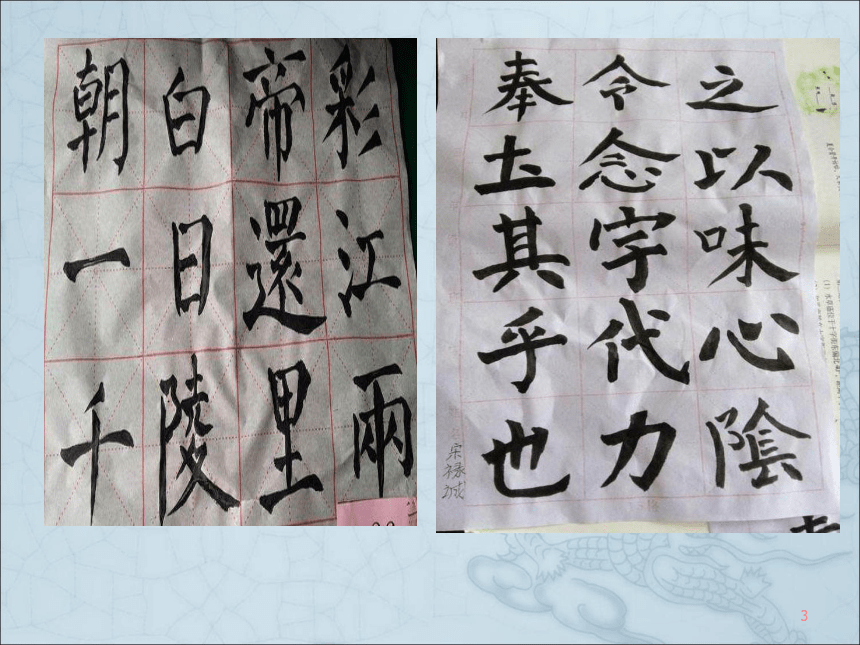 朝白帝彩
一日還江
千陵里兩
奉令之
土念以
其字味
乎代心
也力陰
宋禄城
3